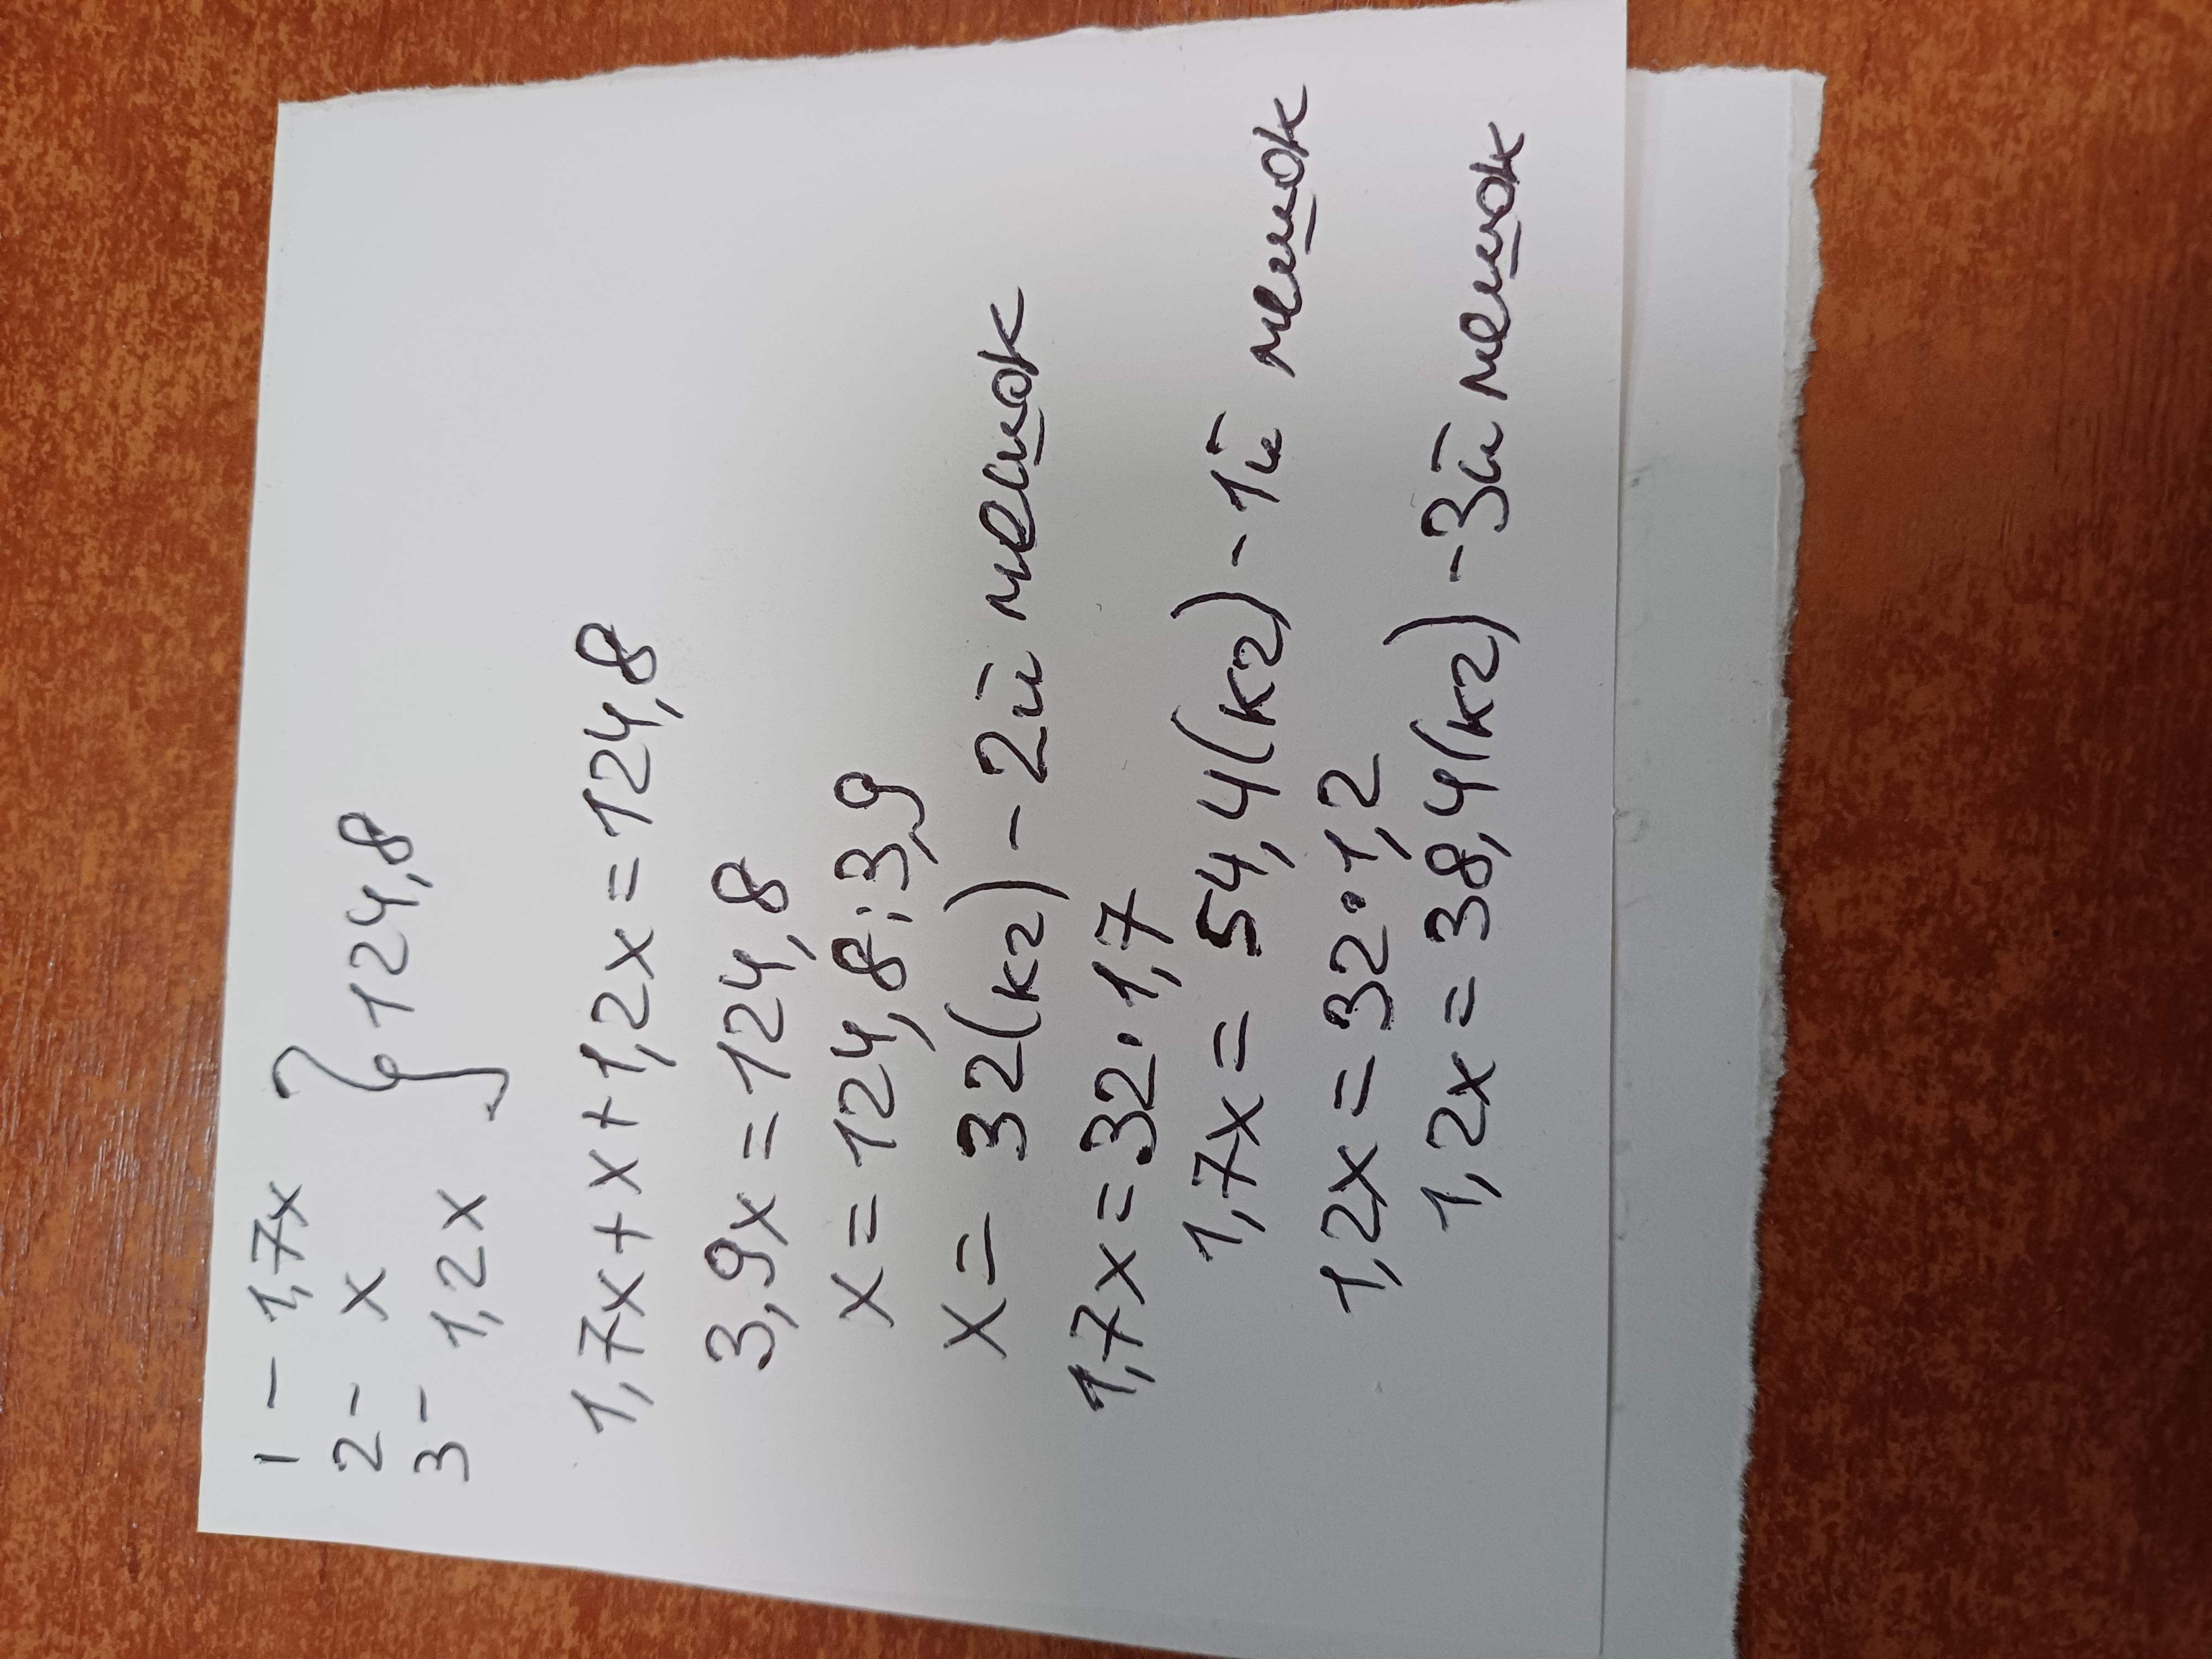 1 - 1,7x
2 - x } 124,8
3 - 1,2x
1,7x+x+1,2x=124,8
3,9x=124,8
x=124,8:3,9
x= 32(кг) - 2й мешок
1,7x=32·1,7
1,7x= 54,4(кг) - 1й мешок
1,2x=32·1,2
1,2x=38,4(кг) - 3й мешок